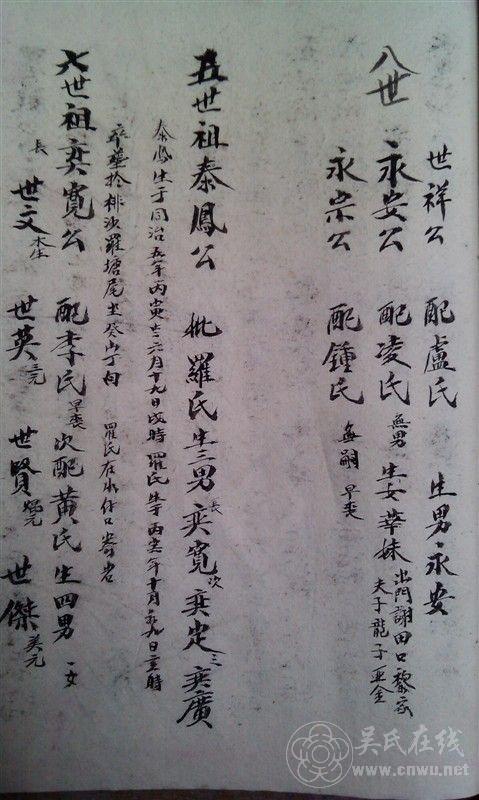 世祥公 配盧氏 生男永安
八世 永安公 配凌氏 無男 生女華妹 出門謝田口黎家
夫子龍子亜金
永宗公 配鍾氏 無嗣 早丧
五世祖泰鳳公 妣羅氏生三男 長奕寬 次奕定 三奕廣
泰鳳生于同治五年丙寅 六月十九日戌時 羅氏生 丙 年十月 九日亥時
卒葬於排沙羅塘尾 癸山丁向 羅氏在水仔口
六世祖奕寬公 配李氏 早丧 次配黄氏 生四男 一女
長 世文 木生 世英 三元 世賢 元 世傑 美元
吴氏在线
www.cnwu.net